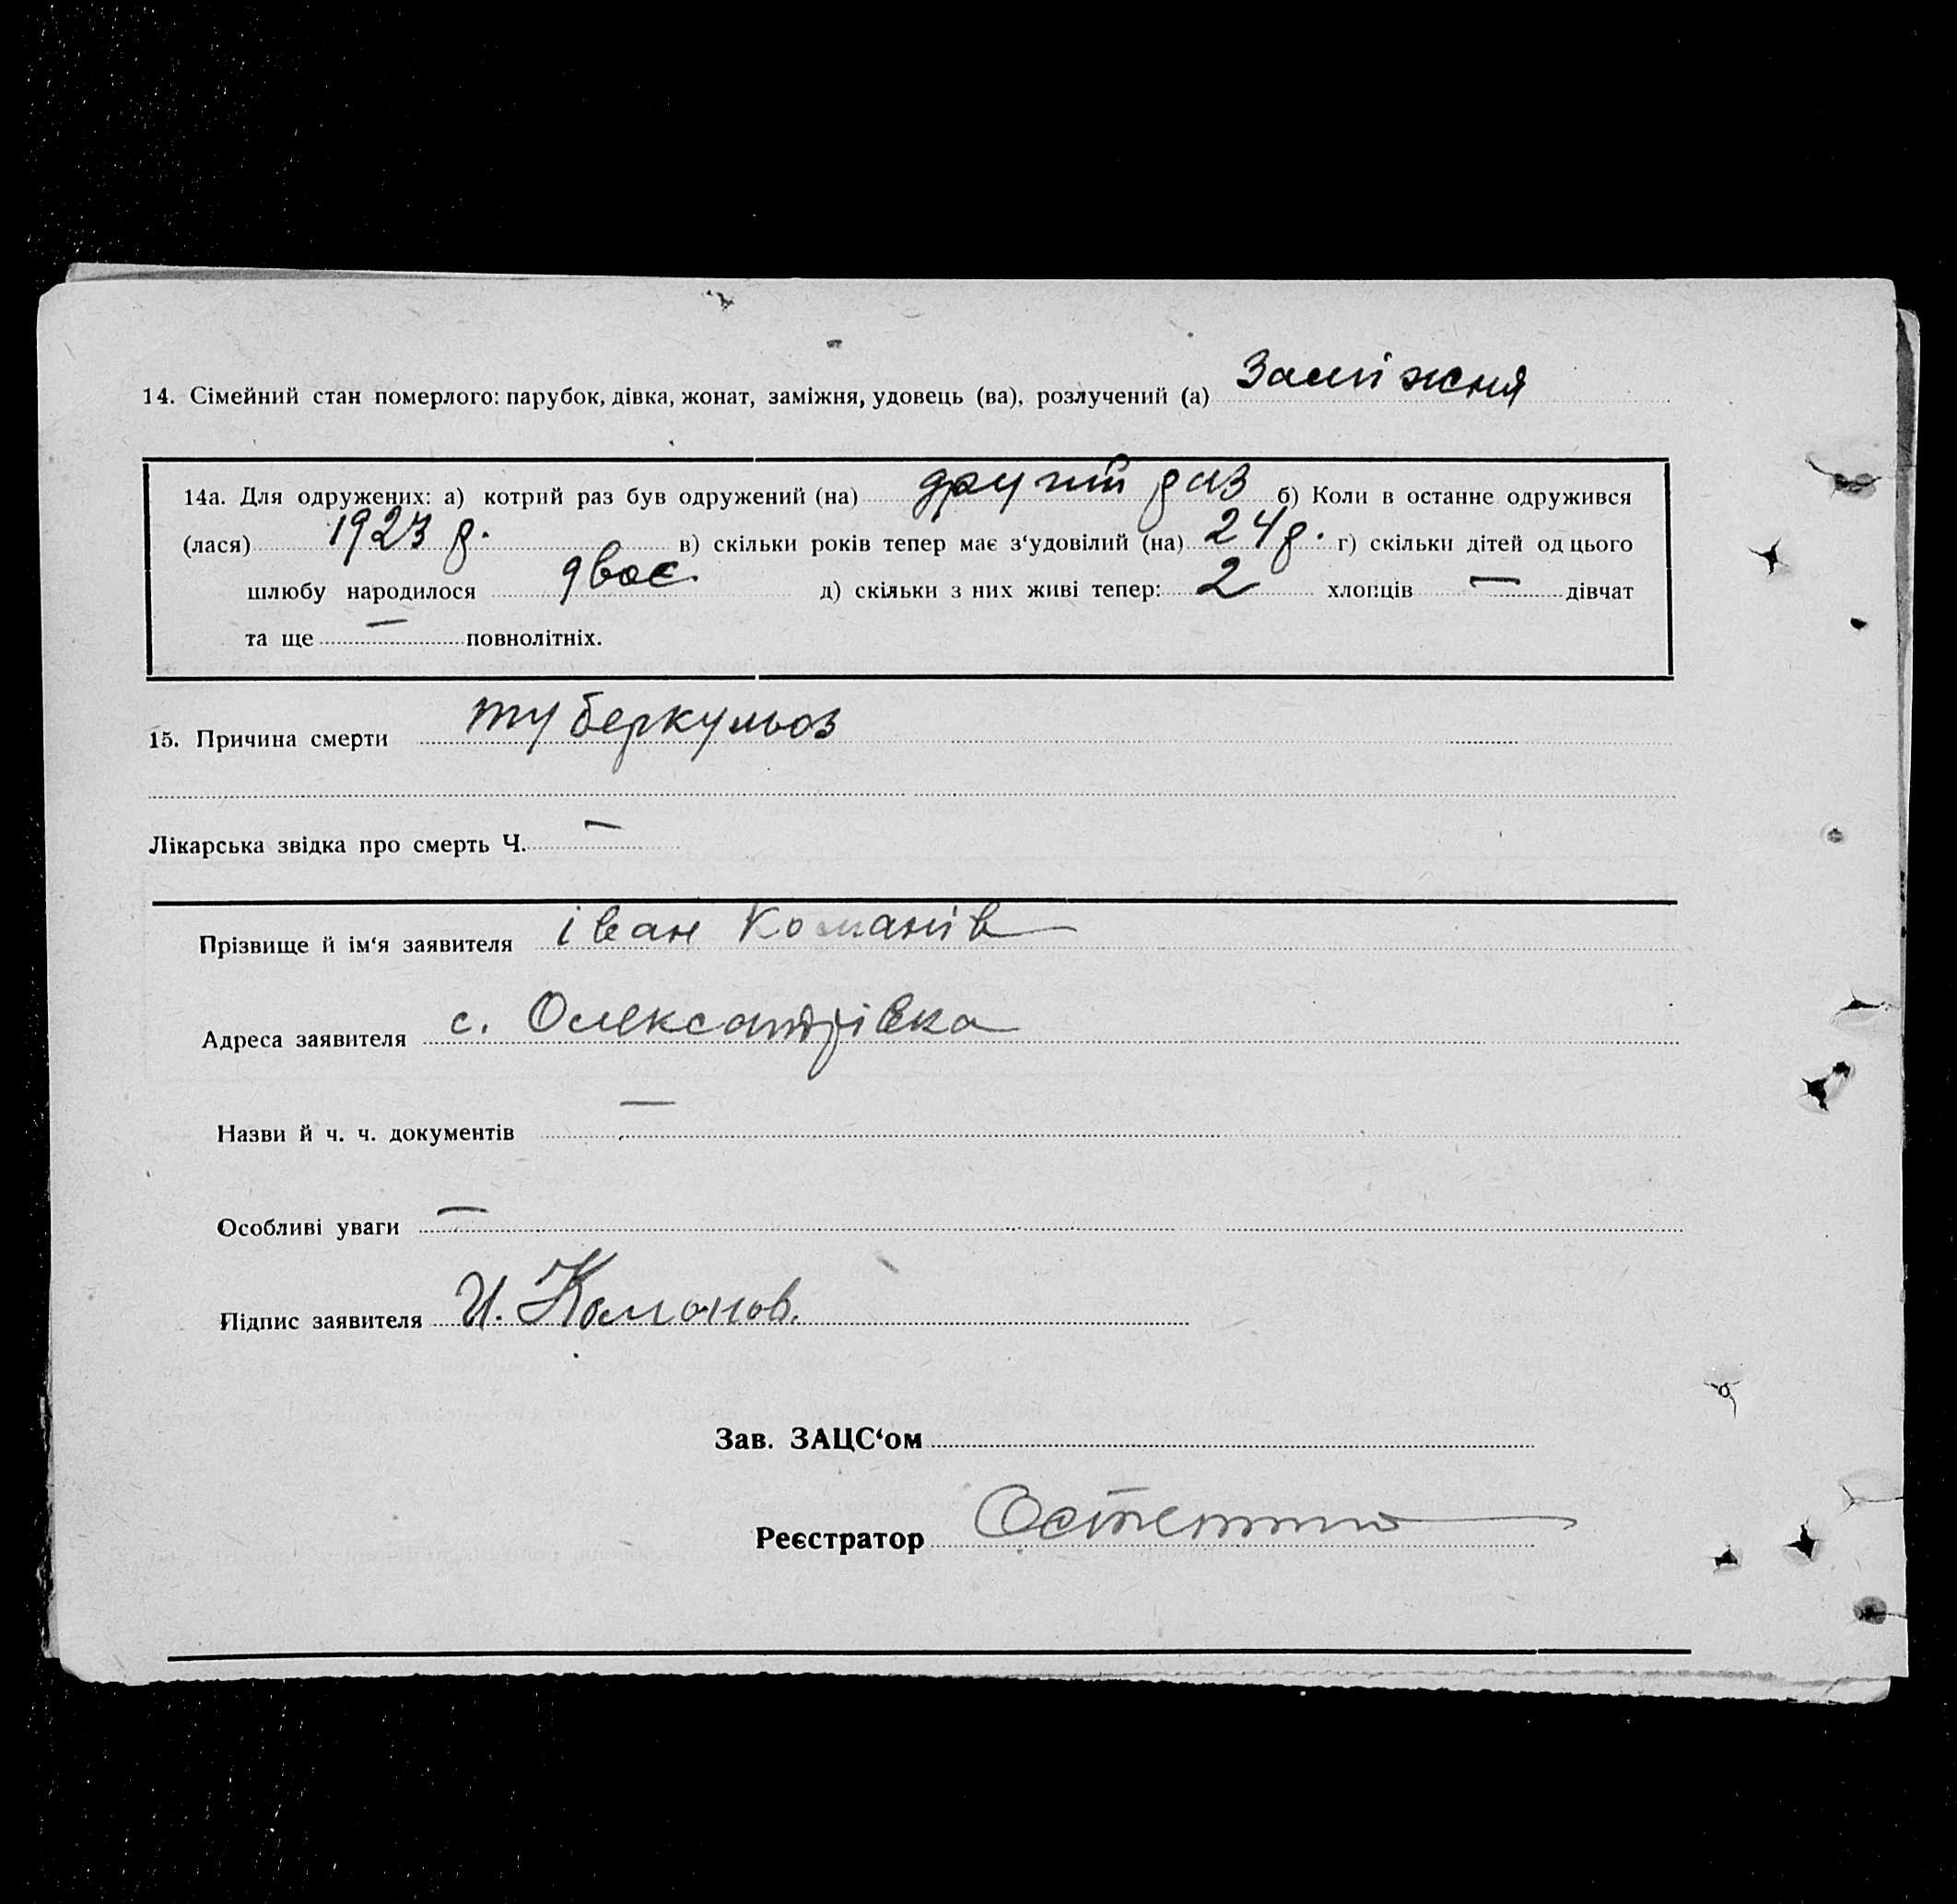 14. Сімейний стан померлого: парубок, дівка, жонат, заміжня, удовець (ва), розлучений (а) Заміжня
14а. Для одружених: а) котрий раз був одружений (на) другий раз б) Коли в останне одружився
(лася) 1923 р. в) скільки років тепер має з‘удовілий (на) 24 р. г) скільки дітей од цього
шлюбу народилося двоє д) скільки з них живі тепер: 2 хлопців — дівчат
та ще — повнолітніх.
15. Причина смерти туберкульоз
Лікарська звідка про смерть Ч. —
Прізвище й ім‘я заявителя іван Команів
Адреса заявителя с. Олександрівка
Назви й ч. ч. документів —
Особливі уваги —
Підпис заявителя И. Команов.
Зав. ЗАЦС‘ом
Реєстратор